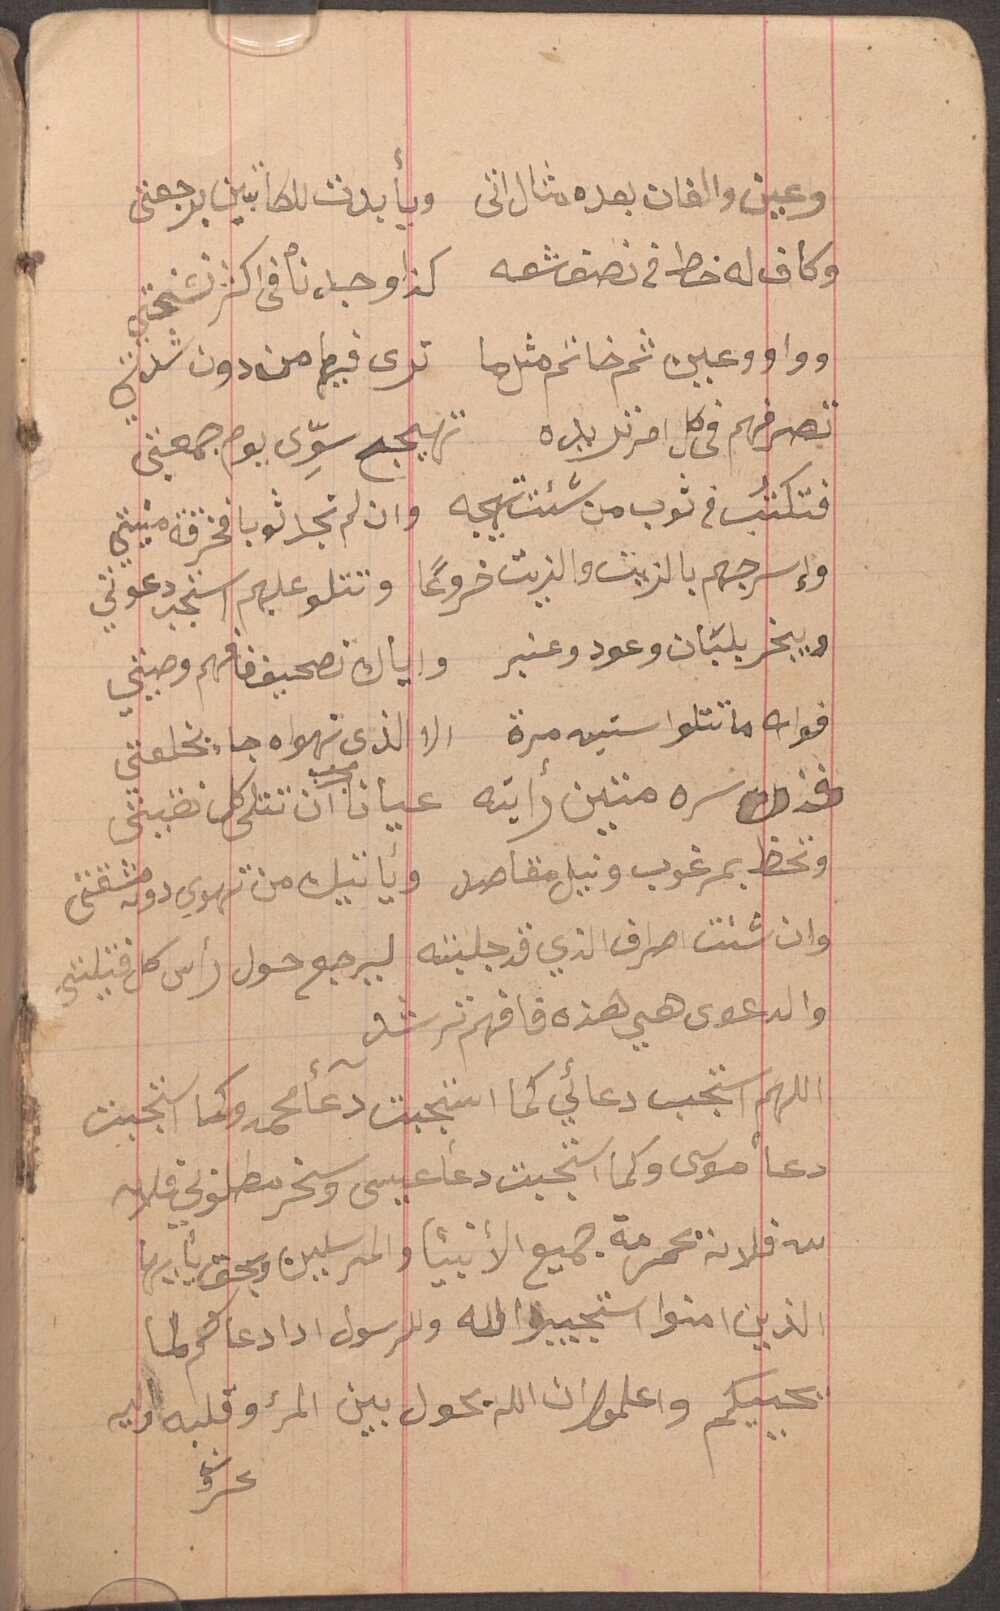 وعين والفان بعده مثال اتى ويأيدت للكاتبين برجعتي
وكاف له خط في نصف شعه كذا وجد نا في اكثر نسختي
وواو وعين ثم خاتم مثلها ترى فيهما من دون شك
تصرفهم في كل امر تريده تهييج سوّى يوم جمعتي
فتكتبُ في ثوب من شئت تهيجه وان لم تجد ثوبا فخرقة ميتتي
وإسرجهم بالزيت والزيت خروعًا وتتلو عليهم استجب دعوتي
ويبخر بلبّان وعود وعنبر واياك تصحيف فافهم وصيتي
فوالله ما تتلوا ستين مرة الا الذي تهواه جاء بخلعتي
فخذ سره متين رأيته عيانا ان تتلى كل نصبتي
وتحظ بمرغوب ونيل مقاصد ويأتيك من تهوى دون مشقتي
وان شئت اصراف الذي قد جلبته ليرجع حول رأس كل فتيلتي
والدعوى هي هذه فافهم ترشد
اللهم استجب دعائي كما استجبت دعآء محمد وكما استجبت
دعأ موسى وكما استجبت دعا عيسى وسخر مطلوبي فلان
بن فلانة بحرمة جميع الأنبيا والمرسلين وبحق يأيها
الذين امنوا استجيبوا لله وللرسول ادا دعاكم لما
يحييكم واعلموا ان الله يحول بين المرء وقلبه واليه
تحشرون